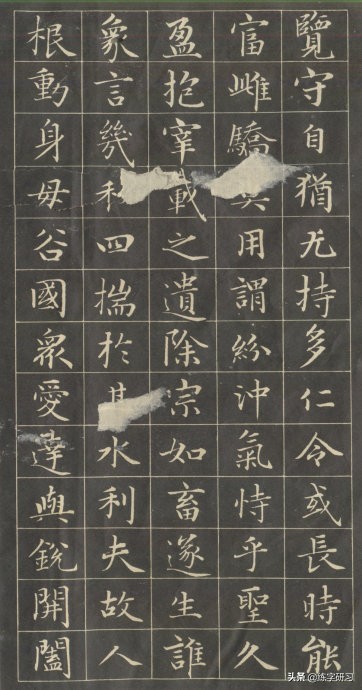 覽守自猶无持多仁令或長時能
富雌驕用謂紛沖氣恃乎聖久
盈抱宰載之遺除宗如畜遂生誰
象言幾和四揣於其水利夫故人
根動身毋谷國衆愛達與銳開闔
头条 @练字研习